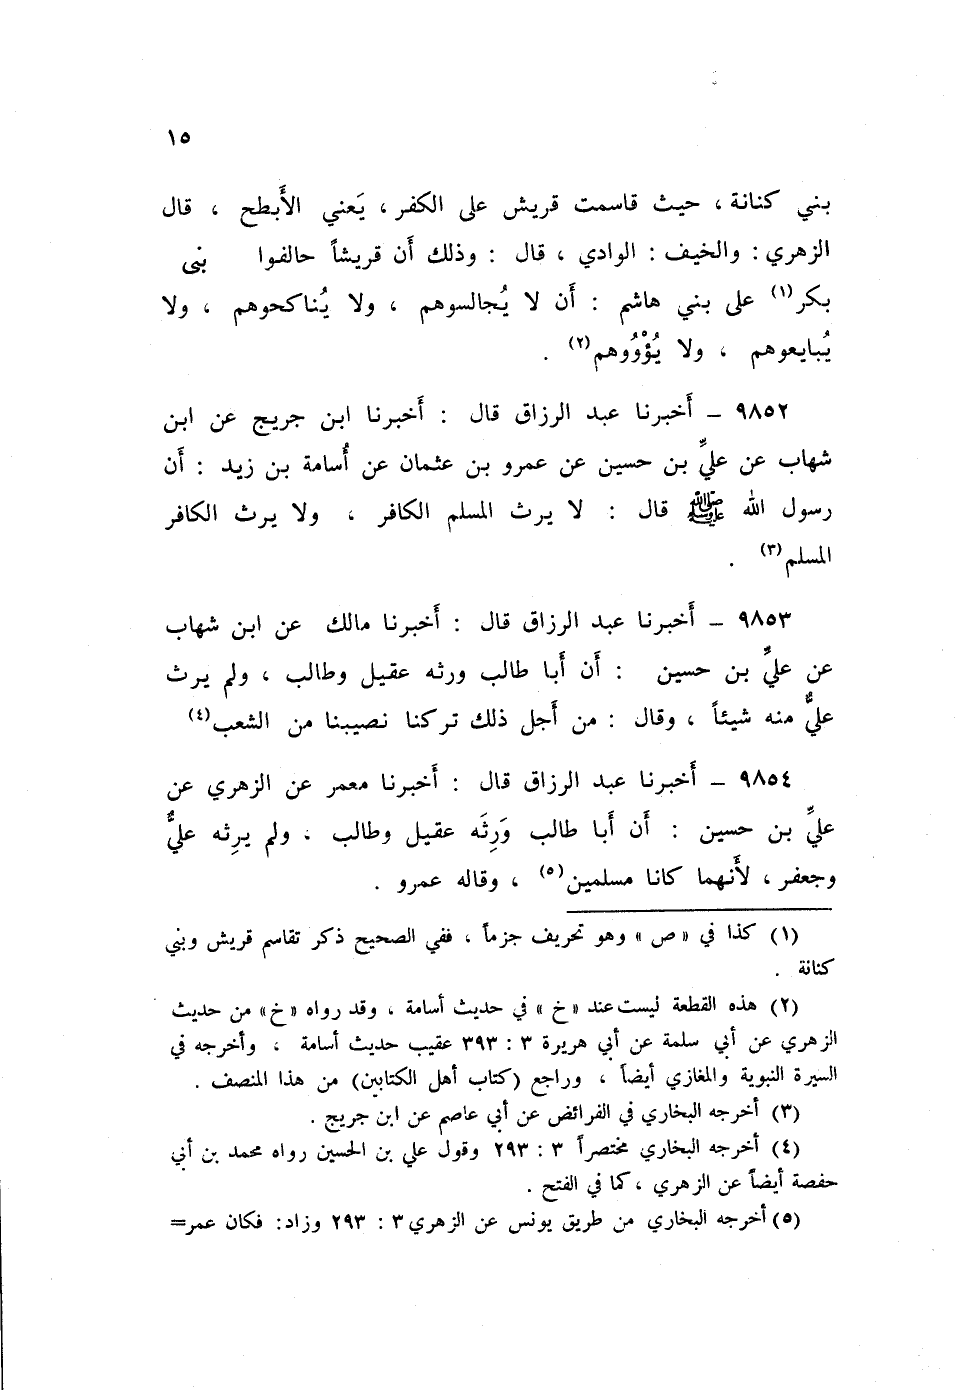 ١٥
بني كنانة ، حيث قاسمت قريش على الكفر ، يَعني الأَبطح ، قال
الزهري : والخيف : الوادي ، قال : وذلك أَن قريشاً حالفوا بنى
بكر(١) على بني هاشم : أَن لا يُجالسوهم ، ولا يُناكحوهم ، ولا
يُبايعوهم ، ولا يُؤْوُوهم(٢) .
٩٨٥٢ – أَخبرنا عبد الرزاق قال : أَخبرنا ابن جريج عن ابن
شهاب عن عليِّ بن حسين عن عمرو بن عثمان عن أُسامة بن زيد : أَن
رسول الله ﷺ قال : لا يرث المسلم الكافر ، ولا يرث الكافر
المسلم(٣) .
٩٨٥٣ – أَخبرنا عبد الرزاق قال : أَخبرنا مالك عن ابن شهاب
عن عليِّ بن حسين : أَن أَبا طالب ورثه عقيل وطالب ، ولم يرث
عليٌّ منه شيئاً ، وقال : من أَجل ذلك تركنا نصيبنا من الشعب(٤)
٩٨٥٤ – أَخبرنا عبد الرزاق قال : أَخبرنا معمر عن الزهري عن
عليِّ بن حسين : أَن أَبا طالب وَرِثَه عقيل وطالب ، ولم يرِثه عليٌّ
وجعفر ، لأَنهما كانا مسلمين(٥) ، وقاله عمرو .
(١) كذا في « ص » وهو تحريف جزماً ، ففي الصحيح ذكر تقاسم قريش وبني
كنانة .
(٢) هذه القطعة ليست عند « خ » في حديث أسامة ، وقد رواه « خ » من حديث
الزهري عن أبي سلمة عن أبي هريرة ٣ : ٣٩٣ عقيب حديث أسامة ، وأخرجه في
السيرة النبوية والمغازي أيضاً ، وراجع (كتاب أهل الكتابين) من هذا المنصف .
(٣) أخرجه البخاري في الفرائض عن أبي عاصم عن ابن جريج .
(٤) أخرجه البخاري مختصراً ٣ : ٢٩٣ وقول علي بن الحسين رواه محمد بن أبي
حفصة أيضاً عن الزهري ، كما في الفتح .
(٥) أخرجه البخاري من طريق يونس عن الزهري ٣ : ٢٩٣ وزاد: فكان عمر=